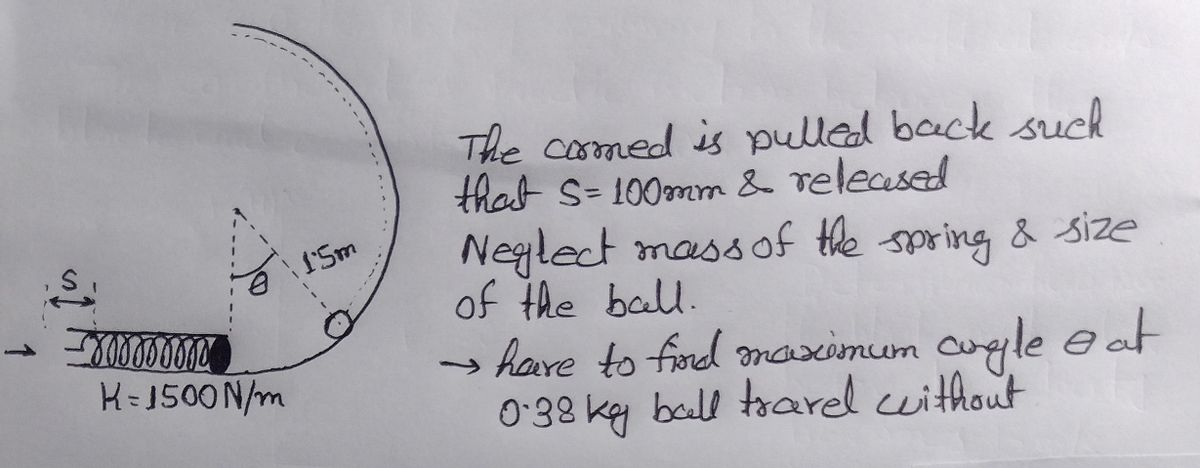 The comed is pulled back such
that S=100mm & released
Neglect mass of the spring & size
of the ball.
→ have to find maximum angle θ at
0.38 kg ball travel without
1.5m
θ
S
K=1500N/m